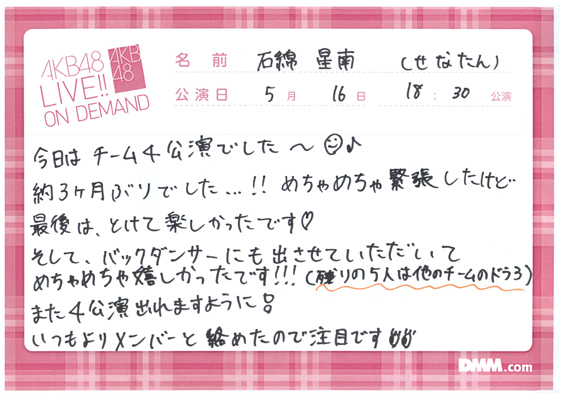 AKB48
LIVE!!
ON DEMAND
AKB
48
名前 石綿 星南 (せなたん)
公演日 5月 16日 18:30 公演
今日は チーム4 公演でした〜☺♪
約3ヶ月ぶりでした...!! めちゃめちゃ緊張したけど
最後は、とけて楽しかったです♡
そして、バックダンサーにも出させていただいて
めちゃめちゃ嬉しかったです!!! (残りの5人は他のチームのドラ3)
また4公演出れますように
いつもよりメンバーと絡めたので注目です
DMM.com